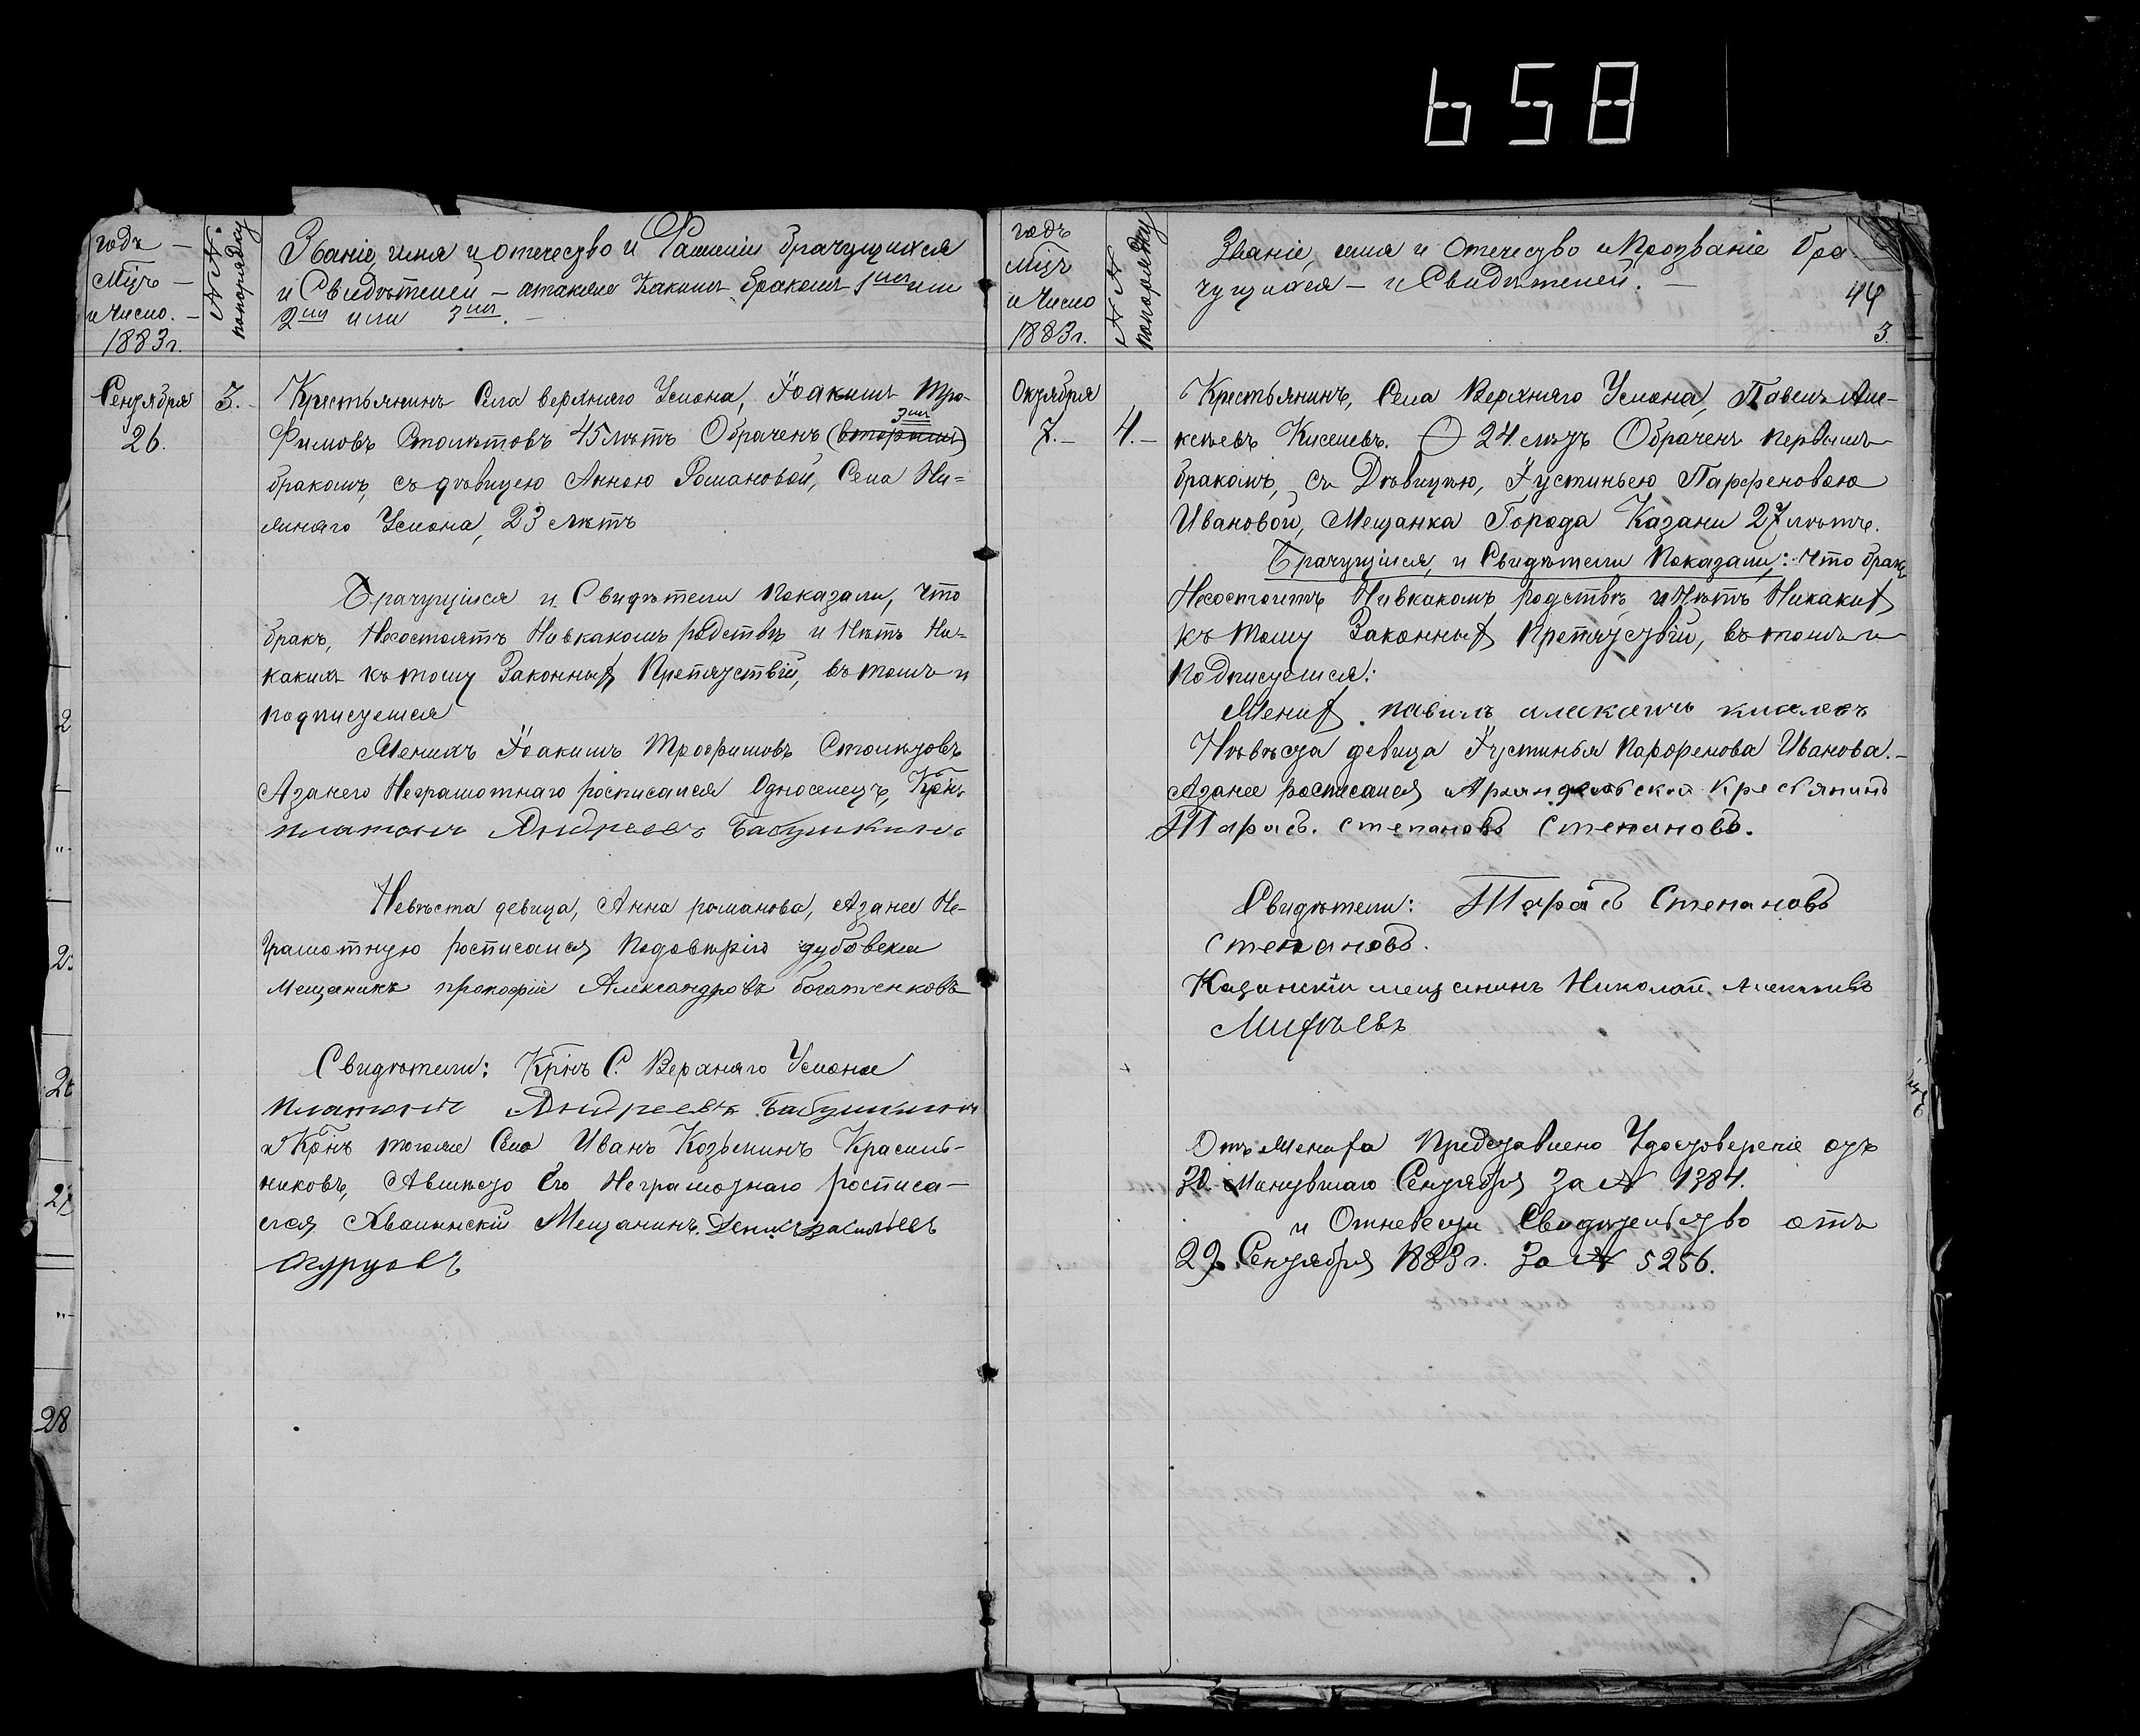 658
годъ —
Мцъ —
и Число. —
1883 г.
№ №
попорядку
Званіе, имя и отечество и Фамиліи брачущихся
и Свидѣтелей — атакже Какимъ бракомъ 1мъ или
2мъ или 3мъ. —
Сентября
26.
3.
Крестьянинъ Села верхняго Услона, Іоакимъ Тро-
3мъ
фимовъ Столѣтовъ 45 лѣтъ Обраченъ (вторымъ)
бракомъ, съ дѣвицею Анною Романовой, Села Ни=
жняго Услона, 23 лѣтъ
Брачущіися и Свидѣтели показали, что
бракъ, Несостоятъ Нивкакомъ родствѣ и Нѣтъ Ни=
какихъ къ тому Законныхъ Препятствій, въ томъ и
подписуемся
Женихъ Іоакимъ Трофимовъ Столѣтовъ
Азанего Неграмотнаго росписался Односелецъ, Крѣнъ
платонъ Андреевъ Бабушкинъ
Невѣста девица, Анна романова, Азанее Не-
грамотную росписался Подовѣрію дубовскій
мещанинъ прокофій Александровъ богатенковъ
Свидѣтели: Крнъ С. Верхняго Услона
платонъ Андреевъ Бабушкинъ
и Крнъ тогоже Села Иванъ Козьминъ Красиль-
никовъ, Авмѣсто Его Неграмотнаго росписа-
лся Хвалынскій Мещанинъ
годъ
мцъ
и Число
1883 г.
№ №
попорядку
Званіе, имя и Отечество и Прозваніе бра-
чущихся — и Свидѣтелей. —
44
3.
Октября
7. —
4. —
Крестьянинъ, Села Верхняго Услона, Павелъ Але-
ксѣевъ Киселевъ. 24 лѣтъ Обраченъ первымъ
бракомъ, съ Дѣвицею, Іустиньею Парфеновою
Ивановой, Мещанка Города Казани 27 лѣтъ.
Брачущіися, и Свидѣтели Показали: что бракъ
Несостоитъ Нивкакомъ родствѣ, и Нѣтъ Никакихъ
къ тому Законныхъ препятствій, въ томъ и
подписуемся:
Женихъ. павилъ алексѣичь киселевъ
Невѣста девица Іустинья парфенова Иванова. —
Азанее росписался Крестянинъ
Тарасъ. степановъ Степановъ.
Свидѣтели: Тарасъ Степановъ
степановъ.
Казанскій мещанинъ Николай Алексѣевъ
Михѣевъ
Отъ Жениха Представлено Удостовереніе отъ
30 Минувшаго Сентября За № 1384.
и Отневесты Свидѣтельство отъ
29 Сентября 1883 г. За № 5256.
2
28